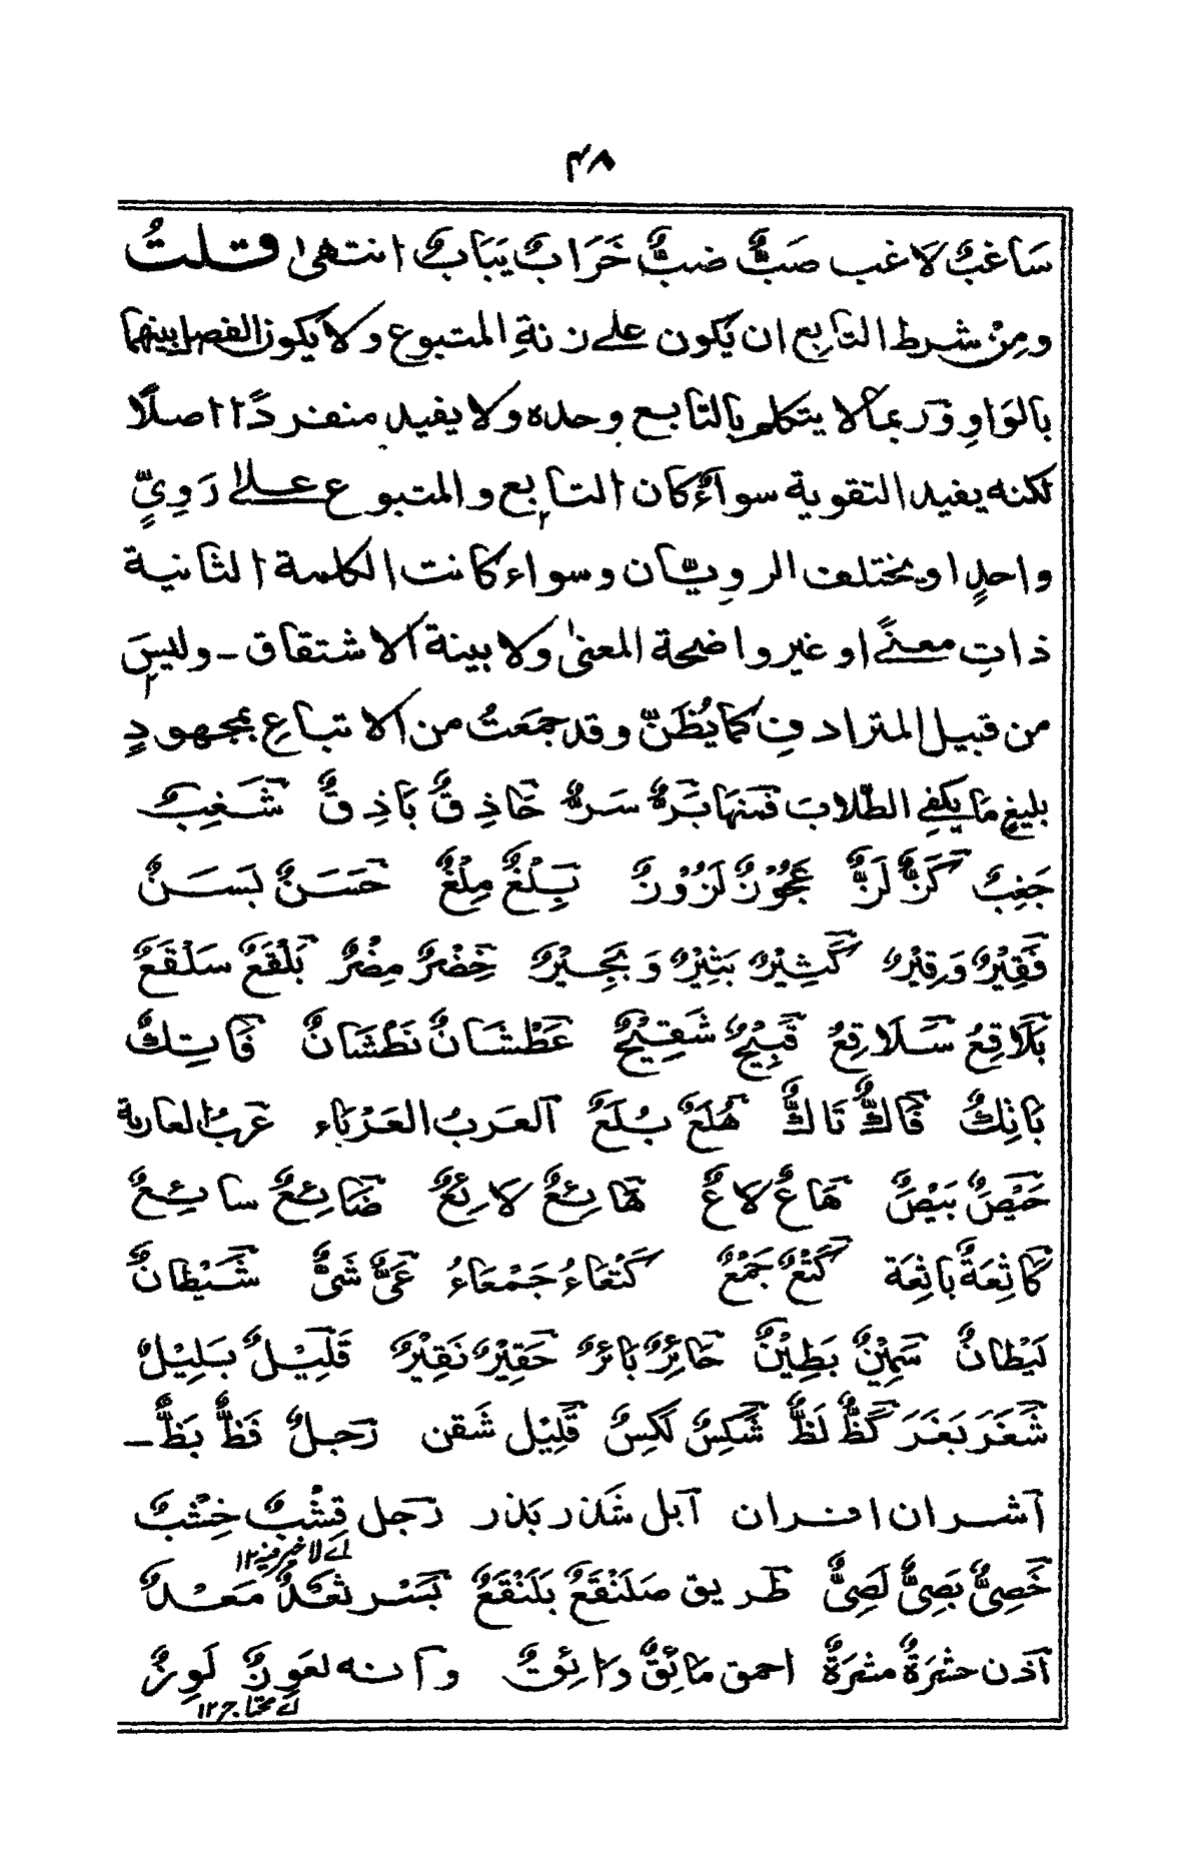 ٤٨
سَاغبٌ لَاغب صَبٌّ ضبٌّ خَرَابٌ يَبَابٌ انتهىٰ قلتُ
ومِنْ شرط التابِع ان يكون علے زنةِ المتبوع ولا يكون الفصل بينهما
بالوَاوِ وَربما لا يتكلم بالتابع وحده ولا يفيد منفردًا اصلًا
لكنه يفيد التقوية سواءٌ كان التابع والمتبوع علےٰ رَوِيٍّ
واحدٍ او بمختلف الرويّان وسواء كانت الكلمة الثانية
ذاتِ معنًے او غير واضحة المعنىٰ ولا بينة الاشتقاق ـ وليسَ
من قبيل المترادفِ كما يُظَنّ وقد جمَعتُ من الاتباعِ بمجهودٍ
بليغٍ مَا يكفِي الطلّاب فمنهَا بَرٌّ سَرٌّ حَاذِقٌ بَاذِقٌ شَغِبٌ
جَغِبٌ كَزٌّ لَزٌّ عَجُوْزٌ لَزُوْزٌ بِلْغٌ مِلْغٌ حَسَنٌ بَسَنٌ
فَقِيْرٌ وَقِيْرٌ كَثِيْرٌ بَثِيْرٌ وَبَجِيْرٌ خِضْرٌ مِضْرٌ بَلْقَعٌ سَلْقَعٌ
بَلَاقِعُ سَلَاقِعُ قَبِيْحٌ شَقِيْحٌ عَطْشَانٌ نَطْشَانٌ فَاتِكٌ
بَاتِكٌ فَاكٌّ تَاكٌّ هُلَعٌ بُلَعٌ العَربُ العَرْبَاء عَربُ العاربة
حَيْصَ بَيْصَ هَاعٌ لَاعٌ هَائِعٌ لَائِعٌ ضَائِعٌ سائِعٌ
كَاثِعَةٌ بَاثِعَة كُتَعٌ جَمْعٌ كَتْعَاءُ جَمْعَاءُ عَىٌّ شَىٌّ شَيْطانٌ
لَيْطانٌ سَمِيْنٌ بَطِيْنٌ حَائِرٌ بَائرٌ حَقِيْرٌ نَقِيْرٌ قَلِيْلٌ بَلِيْلٌ
شَغَرَ بَغَرَ كَظٌّ لَظٌّ شَكِسٌ لَكِسٌ قَلِيْل شَقن رَجلٌ فَظٌّ بَظٌّ ـ
اشران افران ابل شَذر بَذر رَجل قِشْبٌ خِشْبٌ
اے لا خير فيه ١٢
خَصِىٌّ بَصِىٌّ لَصِىٌّ طريق صَلَنْقَعٌ بَلَنْقَعٌ بَسْر ثَعَدٌ مَعْدٌ
اذن حشرَةٌ مشرَةٌ احمق مَائِقٌ دائِقٌ وانه لعَوِزٌ لَوِزٌ
اے محتاج ١٢